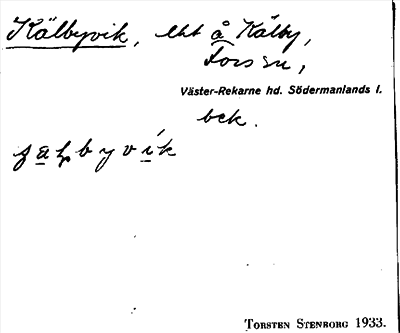 Kälbyvik, lht å Kälby,
Fors sn,
Väster-Rekarne hd. Södermanlands l.
bek.
Torsten Stenborg 1933.